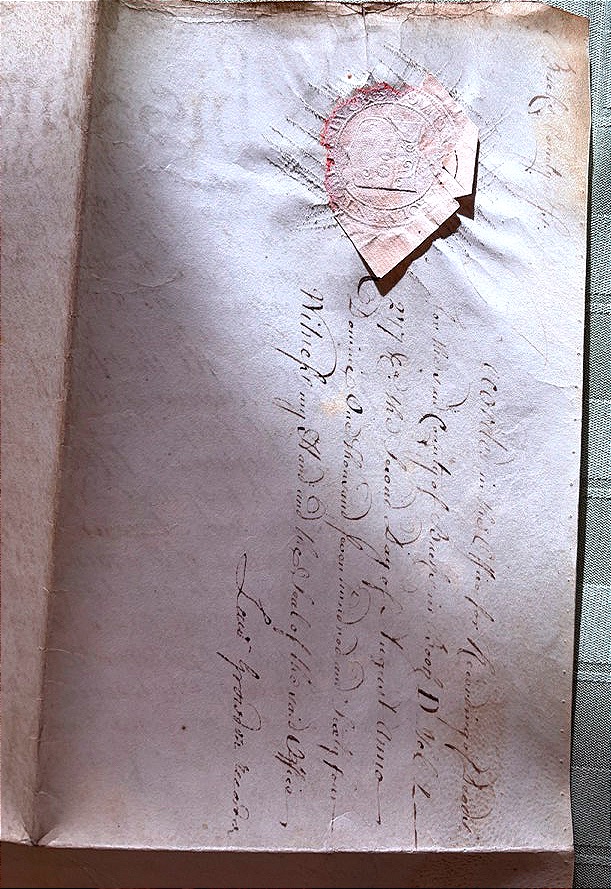 Bucks County ss
Recorded in the Office for Recording of Deeds
in the said County of Bucks in Book D Vol 2
the Second Day of August Anno
Domini One thousand seven hundred and thirty four
Witness my Hand and the Seal of the said Office
Law: Growdon Record